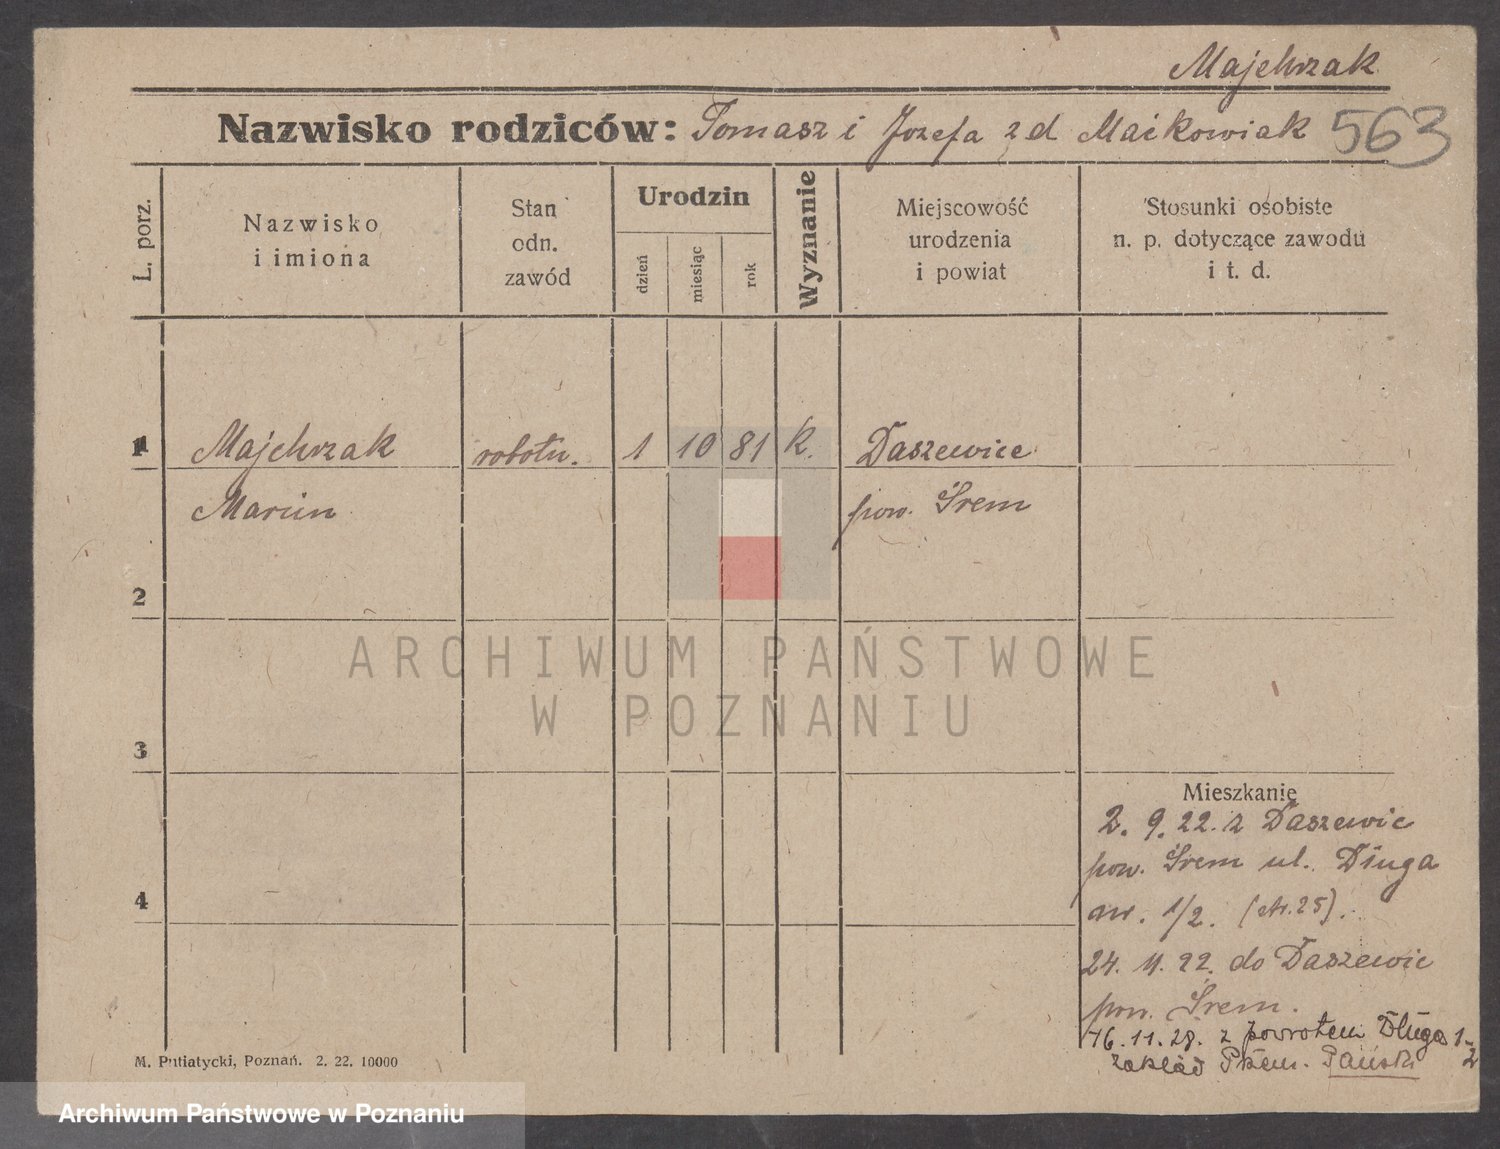 Majchrzak
Nazwisko rodziców: Tomasz i Józefa z d Maćkowiak 563
L. porz.
Nazwisko
i imiona
Stan
odn.
zawód
Urodzin
dzień
miesiąc
rok
Wyznanie
Miejscowość
urodzenia
i powiat
Stosunki osobiste
n. p. dotyczące zawodu
i t. d.
1 Majchrzak robotn. 1 10 81 k. Daszewice
Marcin pow. Śrem
2
3
4
Mieszkanie
2. 9. 22. z Daszewic
pow. Śrem ul. Długa
nr. 1/2. (str. 25).
24. 11. 22. do Daszewic
pow. Śrem.
16. 11. 28. z powrotem Długa 1-2
zakład
M. Putiatycki, Poznań. 2. 22. 10000
ARCHIWUM PAŃSTWOWE
W POZNANIU
Archiwum Państwowe w Poznaniu